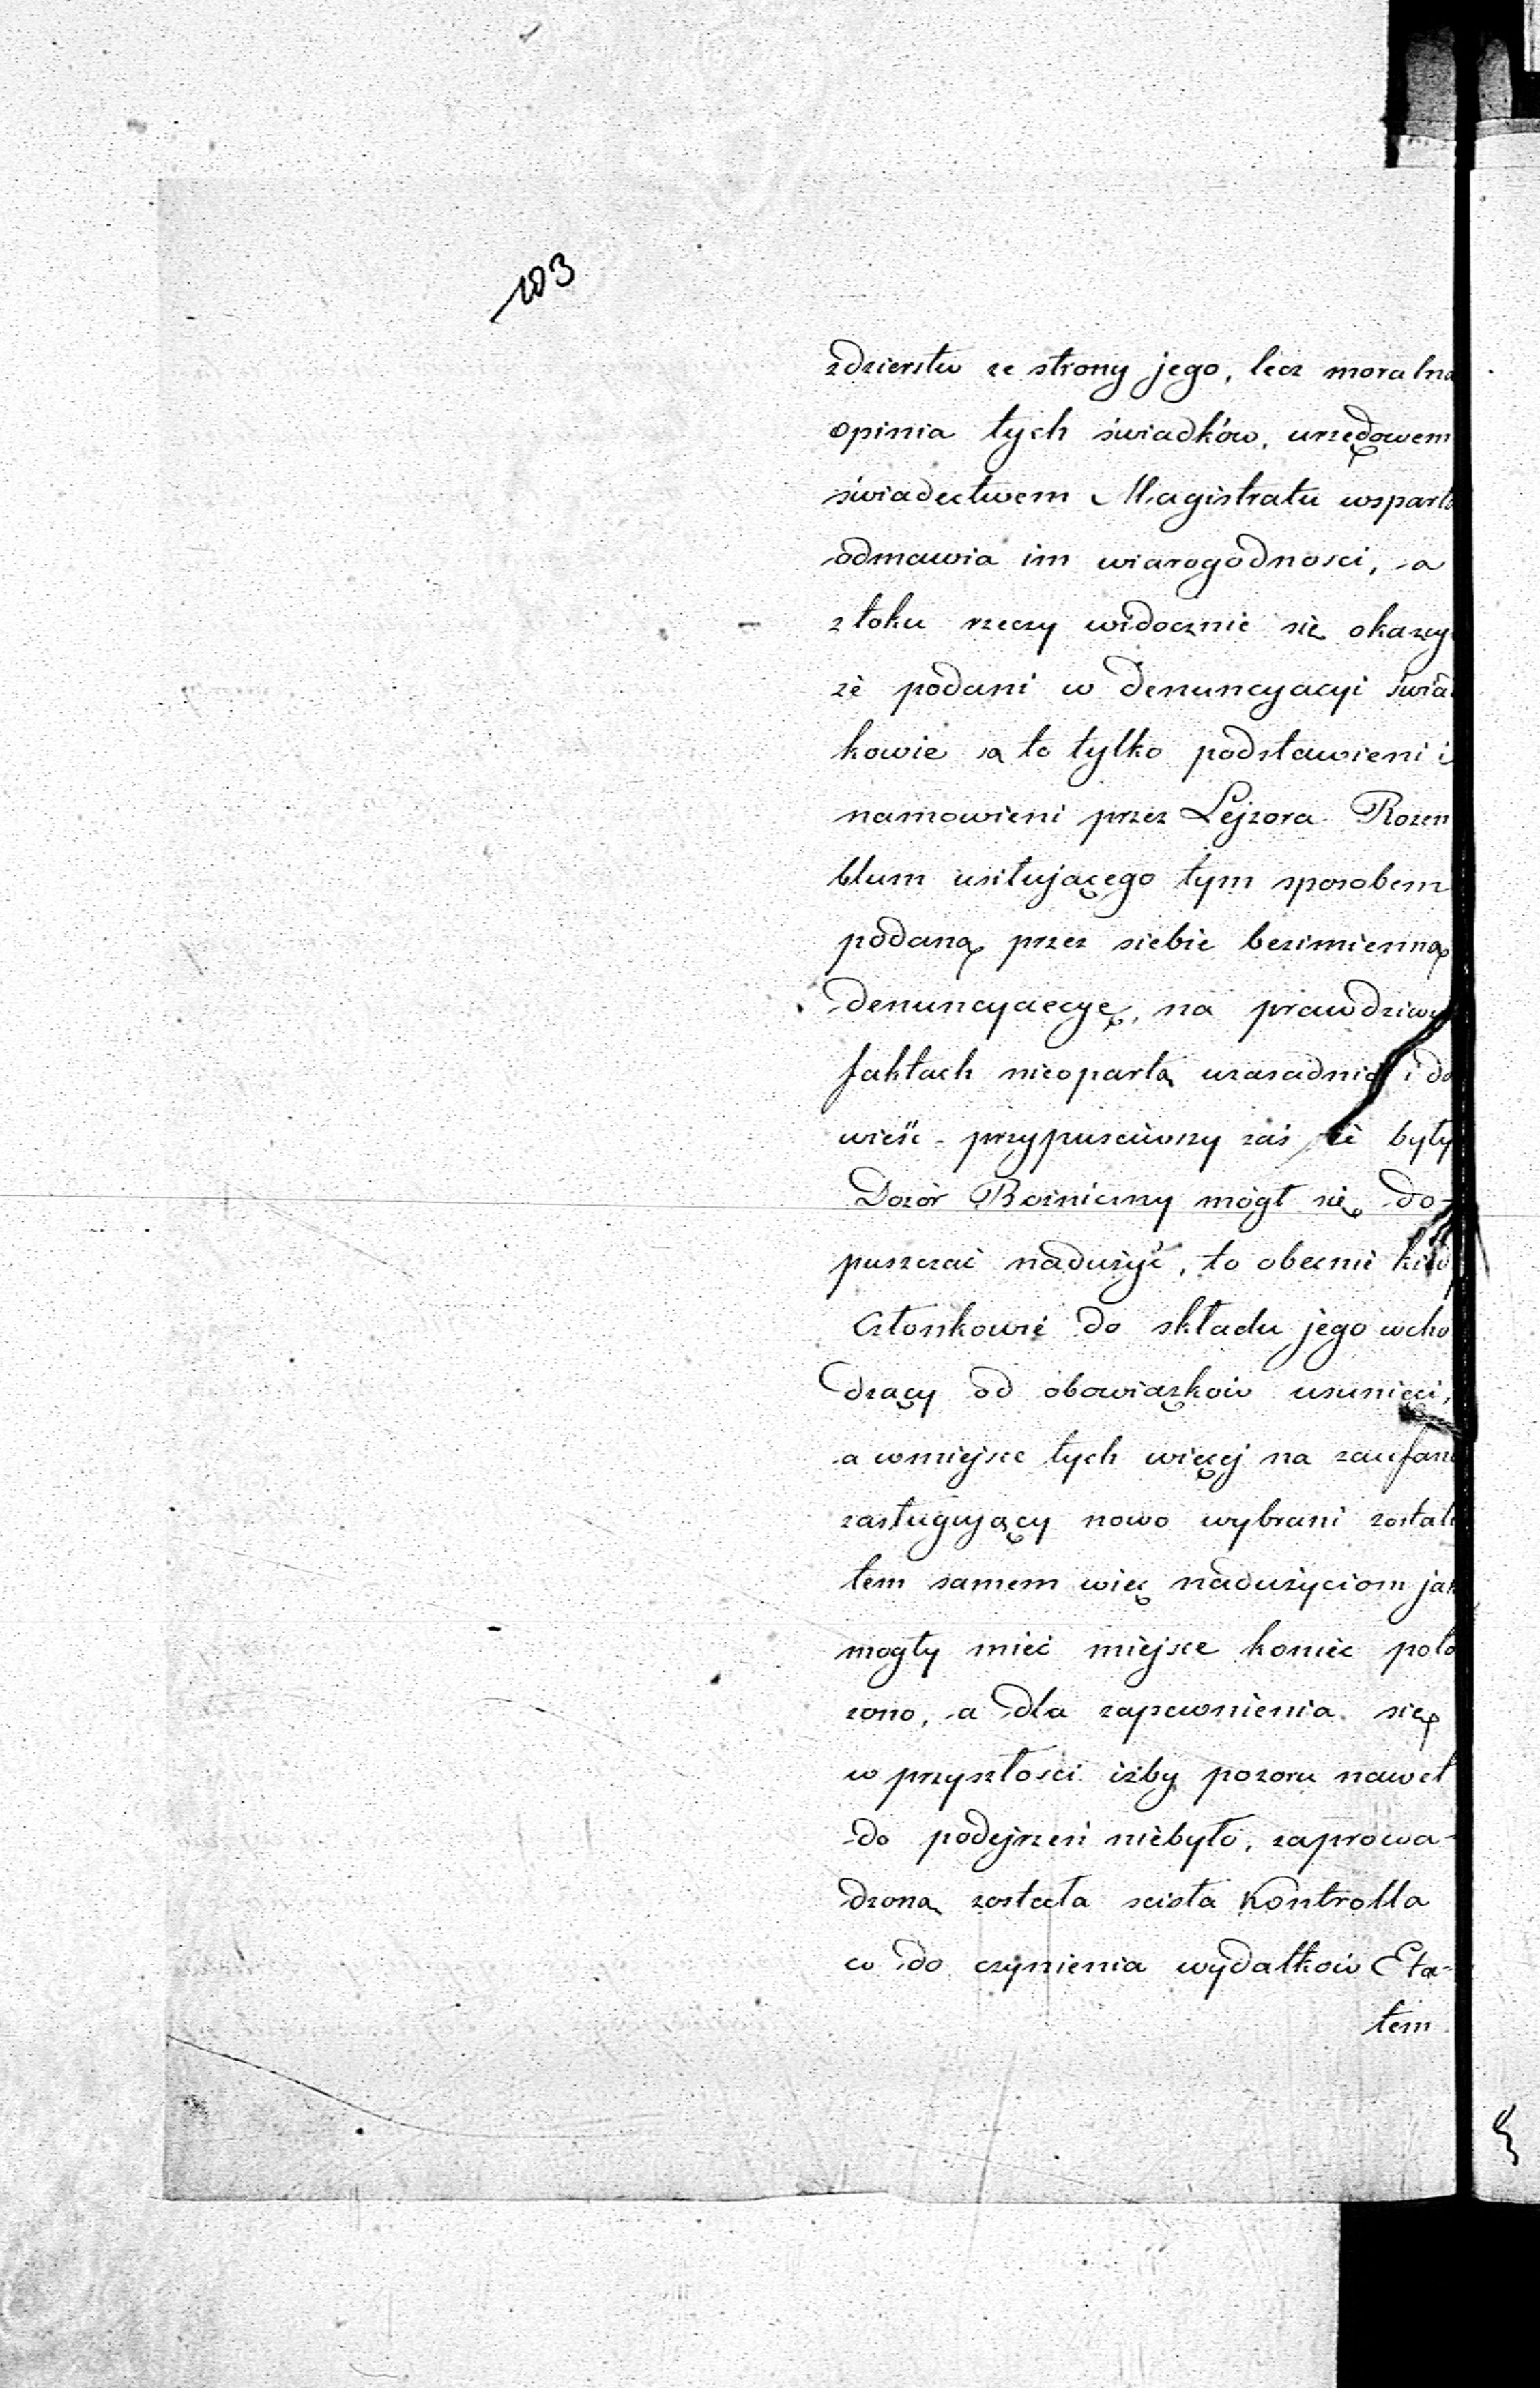 103
zdzierstw ze strony jego, lecz moralna
opinia tych świadków, urzędowem
świadectwem Magistratu wsparta
odmawia im wiarogodnosci, a
z toku rzeczy widocznie się okazy
że podani w denuncyacyi świad
kowie są to tylko podstawieni i
namowieni przez Lejzora Rozen
blum usiłującego tym sposobem
podaną przez siebie bezimienną
denuncyacyę, na prawdziwy
faktach nieopartą uzasadnić i do
wieść - przypusciwszy zaś że były
Dozór Bożniczny mógł się do-
puszczać nadużyć, to obecnie
Członkowie do składu jego wcho
dzący od obowiązków usunięci,
a wmiejsce tych więcej na zaufani
zasługujący nowo wybrani zostali
tem samem więc nadużyciom jak
mogły mieć miejsce koniec poło
żono, a dla zapewnienia się
w przyszłosci iżby pozoru nawet
do podejrzeń niebyło, zaprowa-
dzoną została scisła Kontrolla
co do czynienia wydatków Eta-
tem